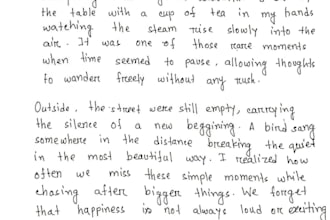 the table with a cup of tea in my hands
watching the steam rise slowly into the
air. It was one of those rare moments
when time seemed to pause, allowing thoughts
to wander freely without any rush.
Outside, the street were still empty, carrying
the silence of a new beggining. A bird sang
somewhere in the distance breaking the quiet
in the most beautiful way. I realized how
often we miss these simple moments while
chasing after bigger things. We forget
that happiness is not always loud or exciting